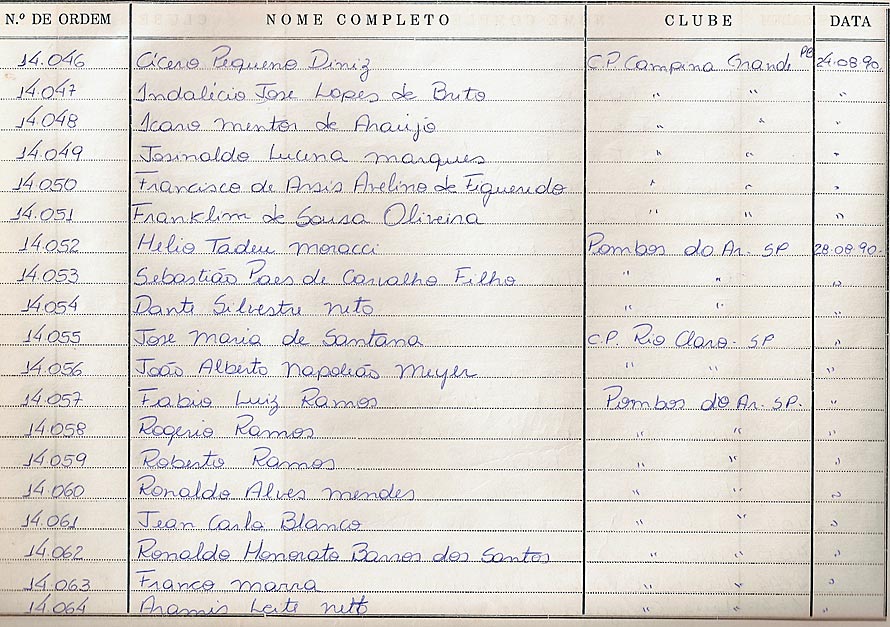 N.º DE ORDEM NOME COMPLETO CLUBE DATA
14.046 Cícero Pequeno Diniz C.P Campina Grande PB 24.08.90.
14.047 Indalécio Jose Lopes de Brito " " "
14.048 Icaro mentor de Araujo " " "
14.049 Josinaldo Lucena marques " " "
14.050 Francisco de Assis Avelino de Figueiredo " " "
14.051 Franklim de Sousa Oliveira " " "
14.052 Helio Tadeu moracci Pombos do Ar. SP 28.08.90.
14.053 Sebastião Paes de Carvalho Filho " " "
14.054 Dante Silvestre neto " " "
14.055 Jose Maria de Santana C.P. Rio Claro. SP "
14.056 João Alberto Napoleão Meyer " " "
14.057 Fabio Luiz Ramos Pombos do Ar. SP. "
14.058 Rogerio Ramos " " "
14.059 Roberto Ramos " " "
14.060 Ronaldo Alves mendes " " "
14.061 Jean Carlo Blanco " " "
14.062 Ronaldo Honorato Barros dos Santos " " "
14.063 Franco marra " " "
14.064 Aramis Leite netto " " "